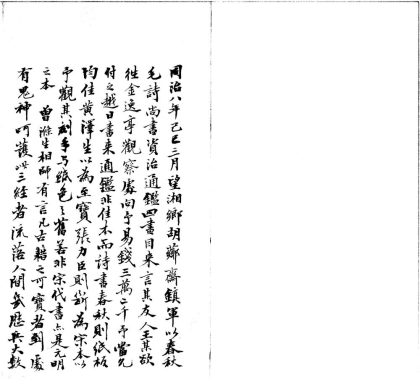 同治八年己巳三月望湘鄉胡薌齋鎮軍以春秋
毛詩尚書資治通鑑四書目來言其友人王某欲
徃金逸亭觀察處向予易錢三萬二千予嘗先
付之越日書来通鑑非佳本而詩書春秋則紙板
均佳黃澤生以為至寶張力臣則斷為宋本以
予觀其刻手与紙色之舊若非宋代書亦是元明
之本 曾滌生相師有言凡古籍之可寶者到處
有鬼神呵護此三經者流落人間幾歷兵火數